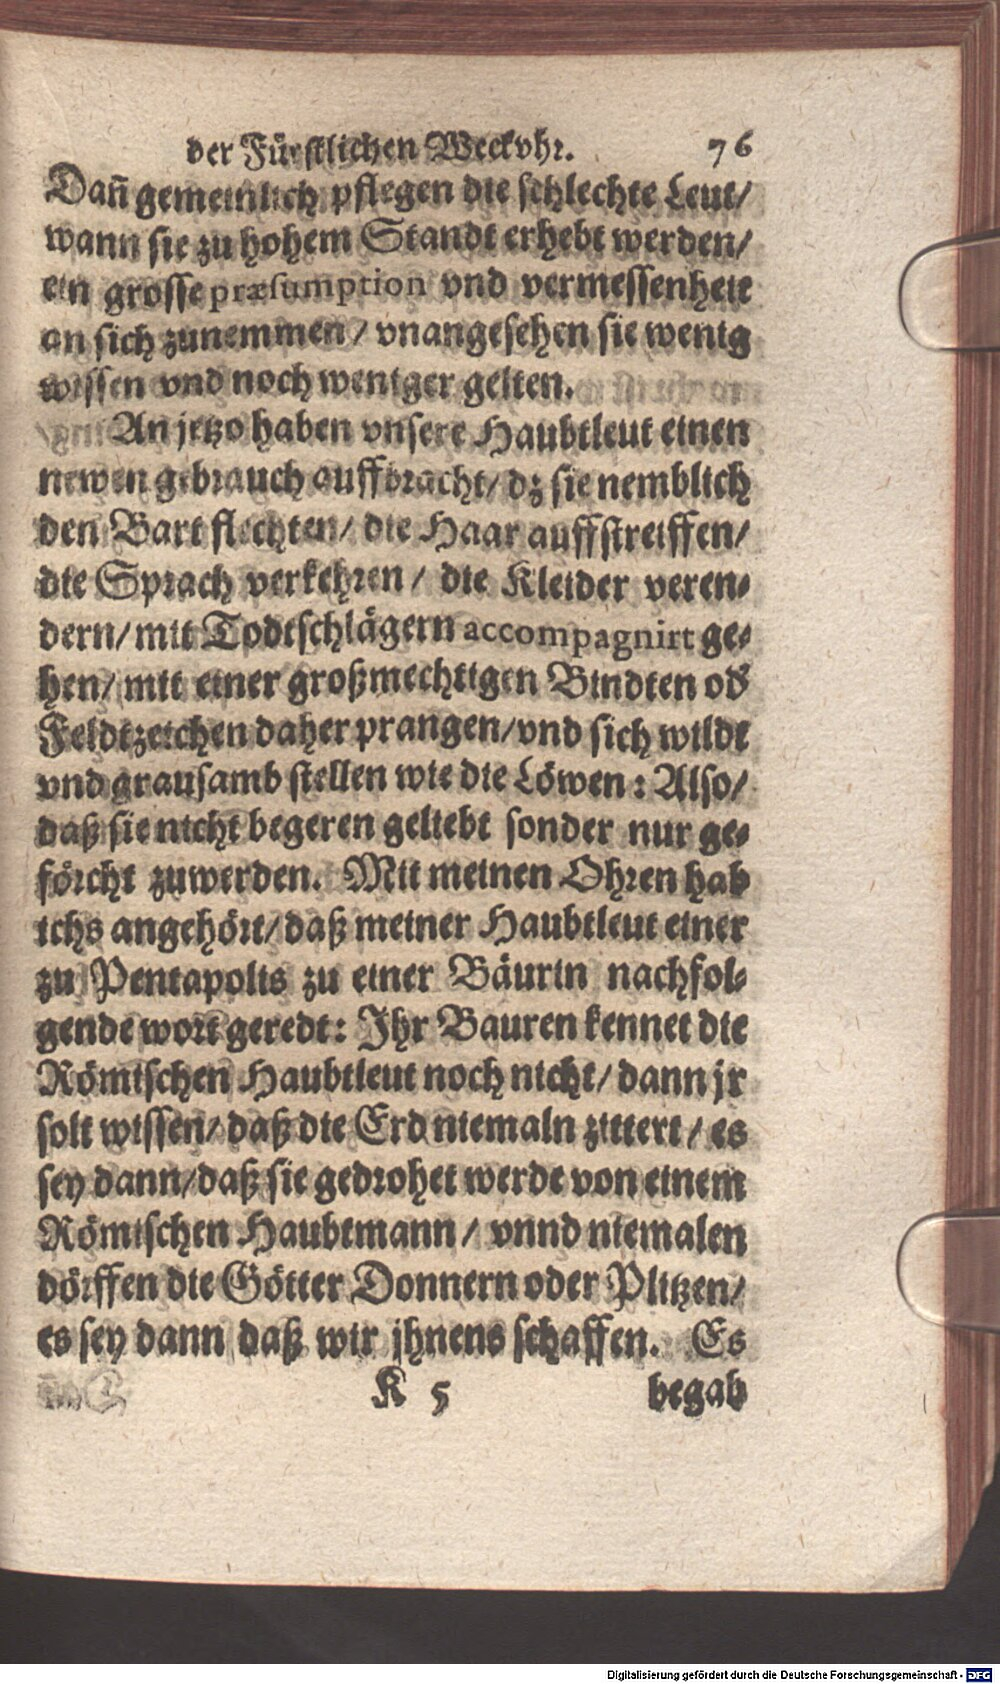 der Fürstlichen Weckvhr. 76
Dañ gemeinlich pflegen die schlechte Leut/
wann sie zu hohem Standt erhebt werden/
ein grosse præsumption vnd vermessenheit
an sich zunemmen/ vnangesehen sie wenig
wissen vnd noch weniger gelten.
An jetzo haben vnsere Haubtleut einen
newen gebrauch auffbracht/ dz sie nemblich
den Bart flechten/ die Haar auffstreiffen/
die Sprach verkehren/ die Kleider veren-
dern/ mit Todtschlägern accompagnirt ge-
hen/ mit einer großmechtigen Bindten od'
Feldtzeichen daher prangen/ vnd sich wildt
vnd grausamb stellen wie die Löwen: Also/
daß sie nicht begeren geliebt sonder nur ge-
förcht zuwerden. Mit meinen Ohren hab
ichs angehört/ daß meiner Haubtleut einer
zu Pentapolis zu einer Bäurin nachfol-
gende wort geredt: Ihr Bauren kennet die
Römischen Haubtleut noch nicht/ dann jr
solt wissen/ daß die Erd niemaln zittert/ es
sey dann/ daß sie gedrohet werde von einem
Römischen Haubtmann/ vnnd niemalen
dörffen die Götter Donnern oder Plitzen/
es sey dann daß wir jhnens schaffen. Es
K 5 begab
Digitalisierung gefördert durch die Deutsche Forschungsgemeinschaft - DFG